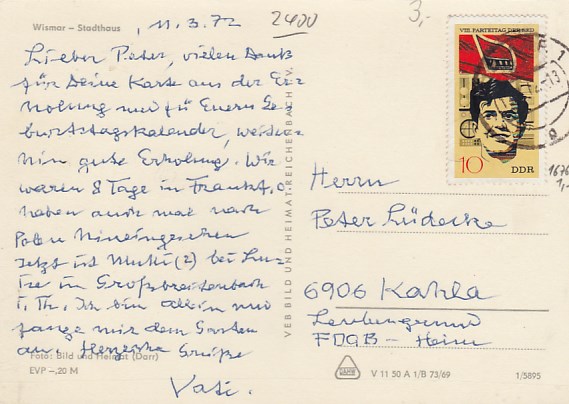 Wismar – Stadthaus
11.3.72
2400
3,-
Lieber Peter, vielen Dank
für Deine Karte aus der Er-
holung und für Euern Ge-
burtstagskalender, weiter-
hin gute Erholung. Wir
waren 8 Tage in Frankf. O
haben auch mal nach
Polen hineingesehen
Jetzt ist Mutti (2) bei
in Großbreitenbach
i. Th. Ich bin allein und
fange mit dem Garten
an. Herzliche Grüße
Vati.
Foto: Bild und Heimat (Darr)
EVP –,20 M
VEB BILD UND HEIMAT REICHENBACH i. V.
VIII. PARTEITAG DER SED
10
DDR
1676
1,-
Herrn
Peter Lüdecke
6906 Kahla
Leubengrund
FDGB – Heim
V 11 50 A 1/B 73/69
1/5895